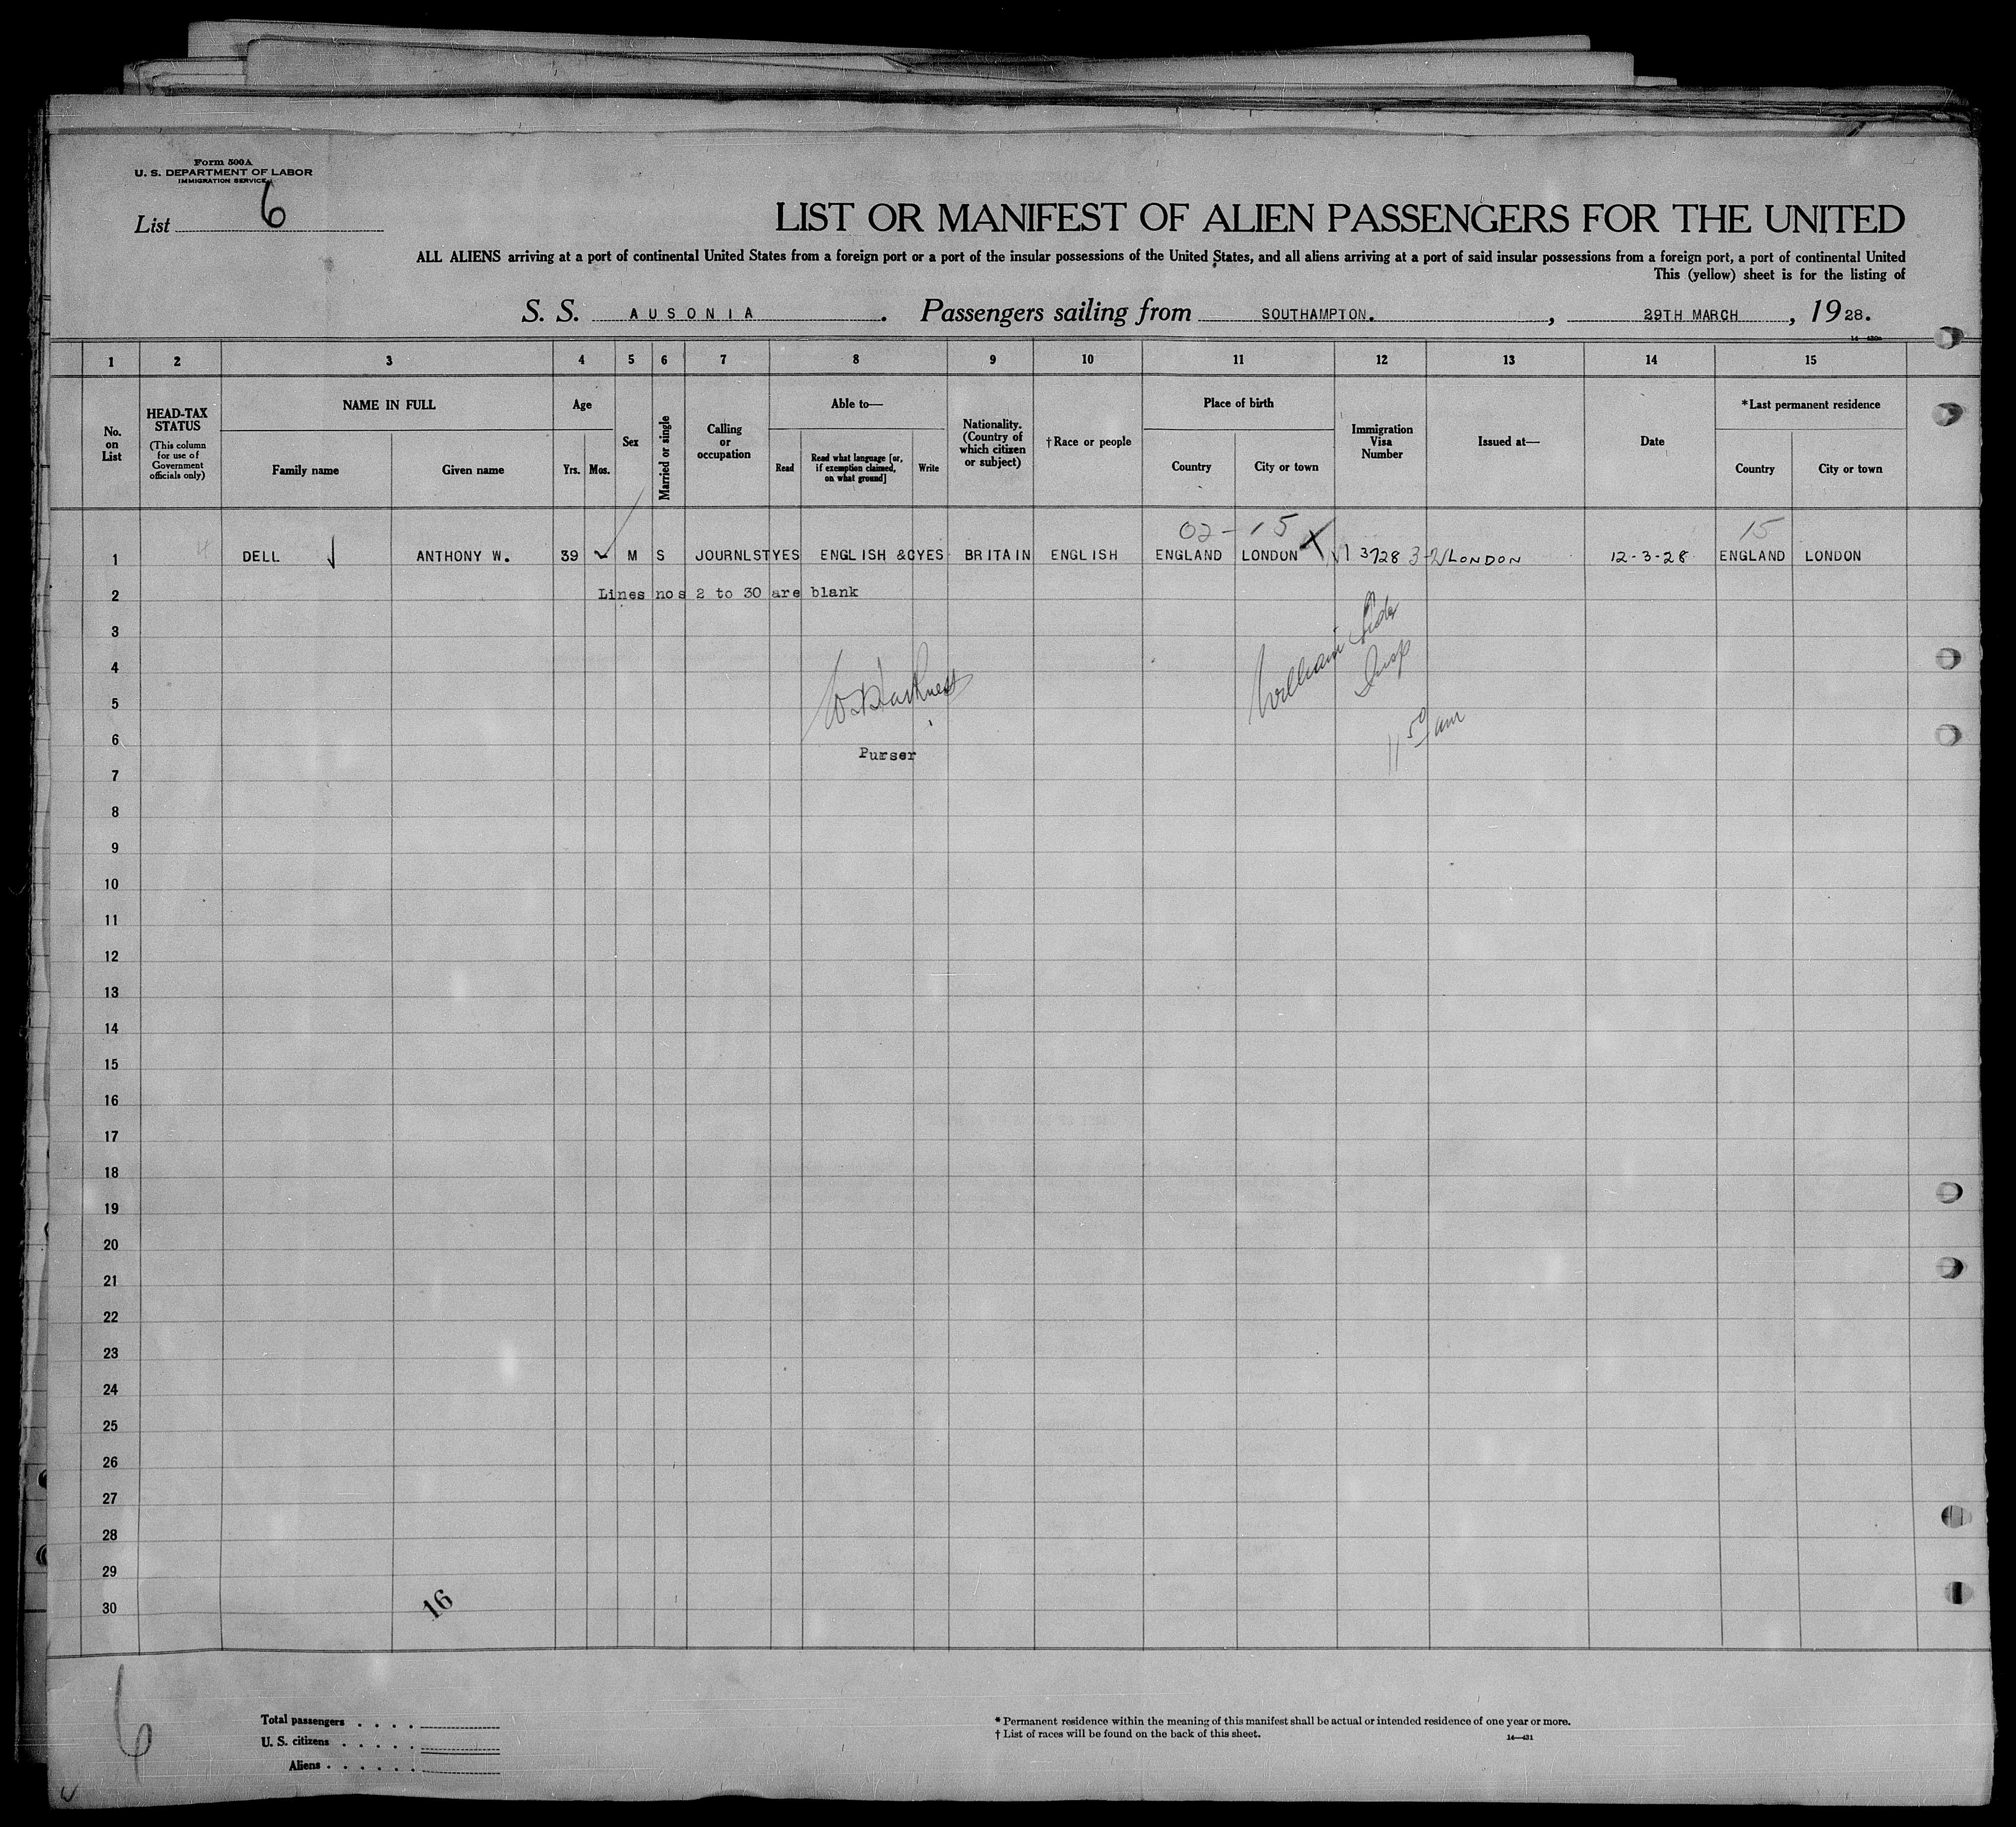 Form 500A
U. S. DEPARTMENT OF LABOR
IMMIGRATION SERVICE
List 6
LIST OR MANIFEST OF ALIEN PASSENGERS FOR THE UNITED
ALL ALIENS arriving at a port of continental United States from a foreign port or a port of the insular possessions of the United States, and all aliens arriving at a port of said insular possessions from a foreign port, a port of continental United
This (yellow) sheet is for the listing of
S. S. AUSONIA. Passengers sailing from SOUTHAMPTON., 29TH MARCH, 1928.
1 2 3 4 5 6 7 8 9 10 11 12 13 14 15
No. on List
HEAD-TAX STATUS
(This column for use of Government officials only)
NAME IN FULL
Family name Given name
Age
Yrs. Mos.
Sex
Married or single
Calling or occupation
Able to—
Read
Read what language [or, if exemption claimed, on what ground]
Write
Nationality. (Country of which citizen or subject)
†Race or people
Place of birth
Country City or town
Immigration Visa Number
Issued at—
Date
*Last permanent residence
Country City or town
02-15 X 15
1 DELL ANTHONY W. 39 M S JOURNLST YES ENGLISH &C YES BRITAIN ENGLISH ENGLAND LONDON 3728 LONDON 12-3-28 ENGLAND LONDON
2 Lines nos 2 to 30 are blank
3
4
William
Insp
5
W Harkness
6
11 50 am
Purser
7
8
9
10
11
12
13
14
15
16
17
18
19
20
21
22
23
24
25
26
27
28
29
30
16
6
Total passengers . . . .
U. S. citizens . . . . .
Aliens . . . . . .
* Permanent residence within the meaning of this manifest shall be actual or intended residence of one year or more.
† List of races will be found on the back of this sheet.
14—431